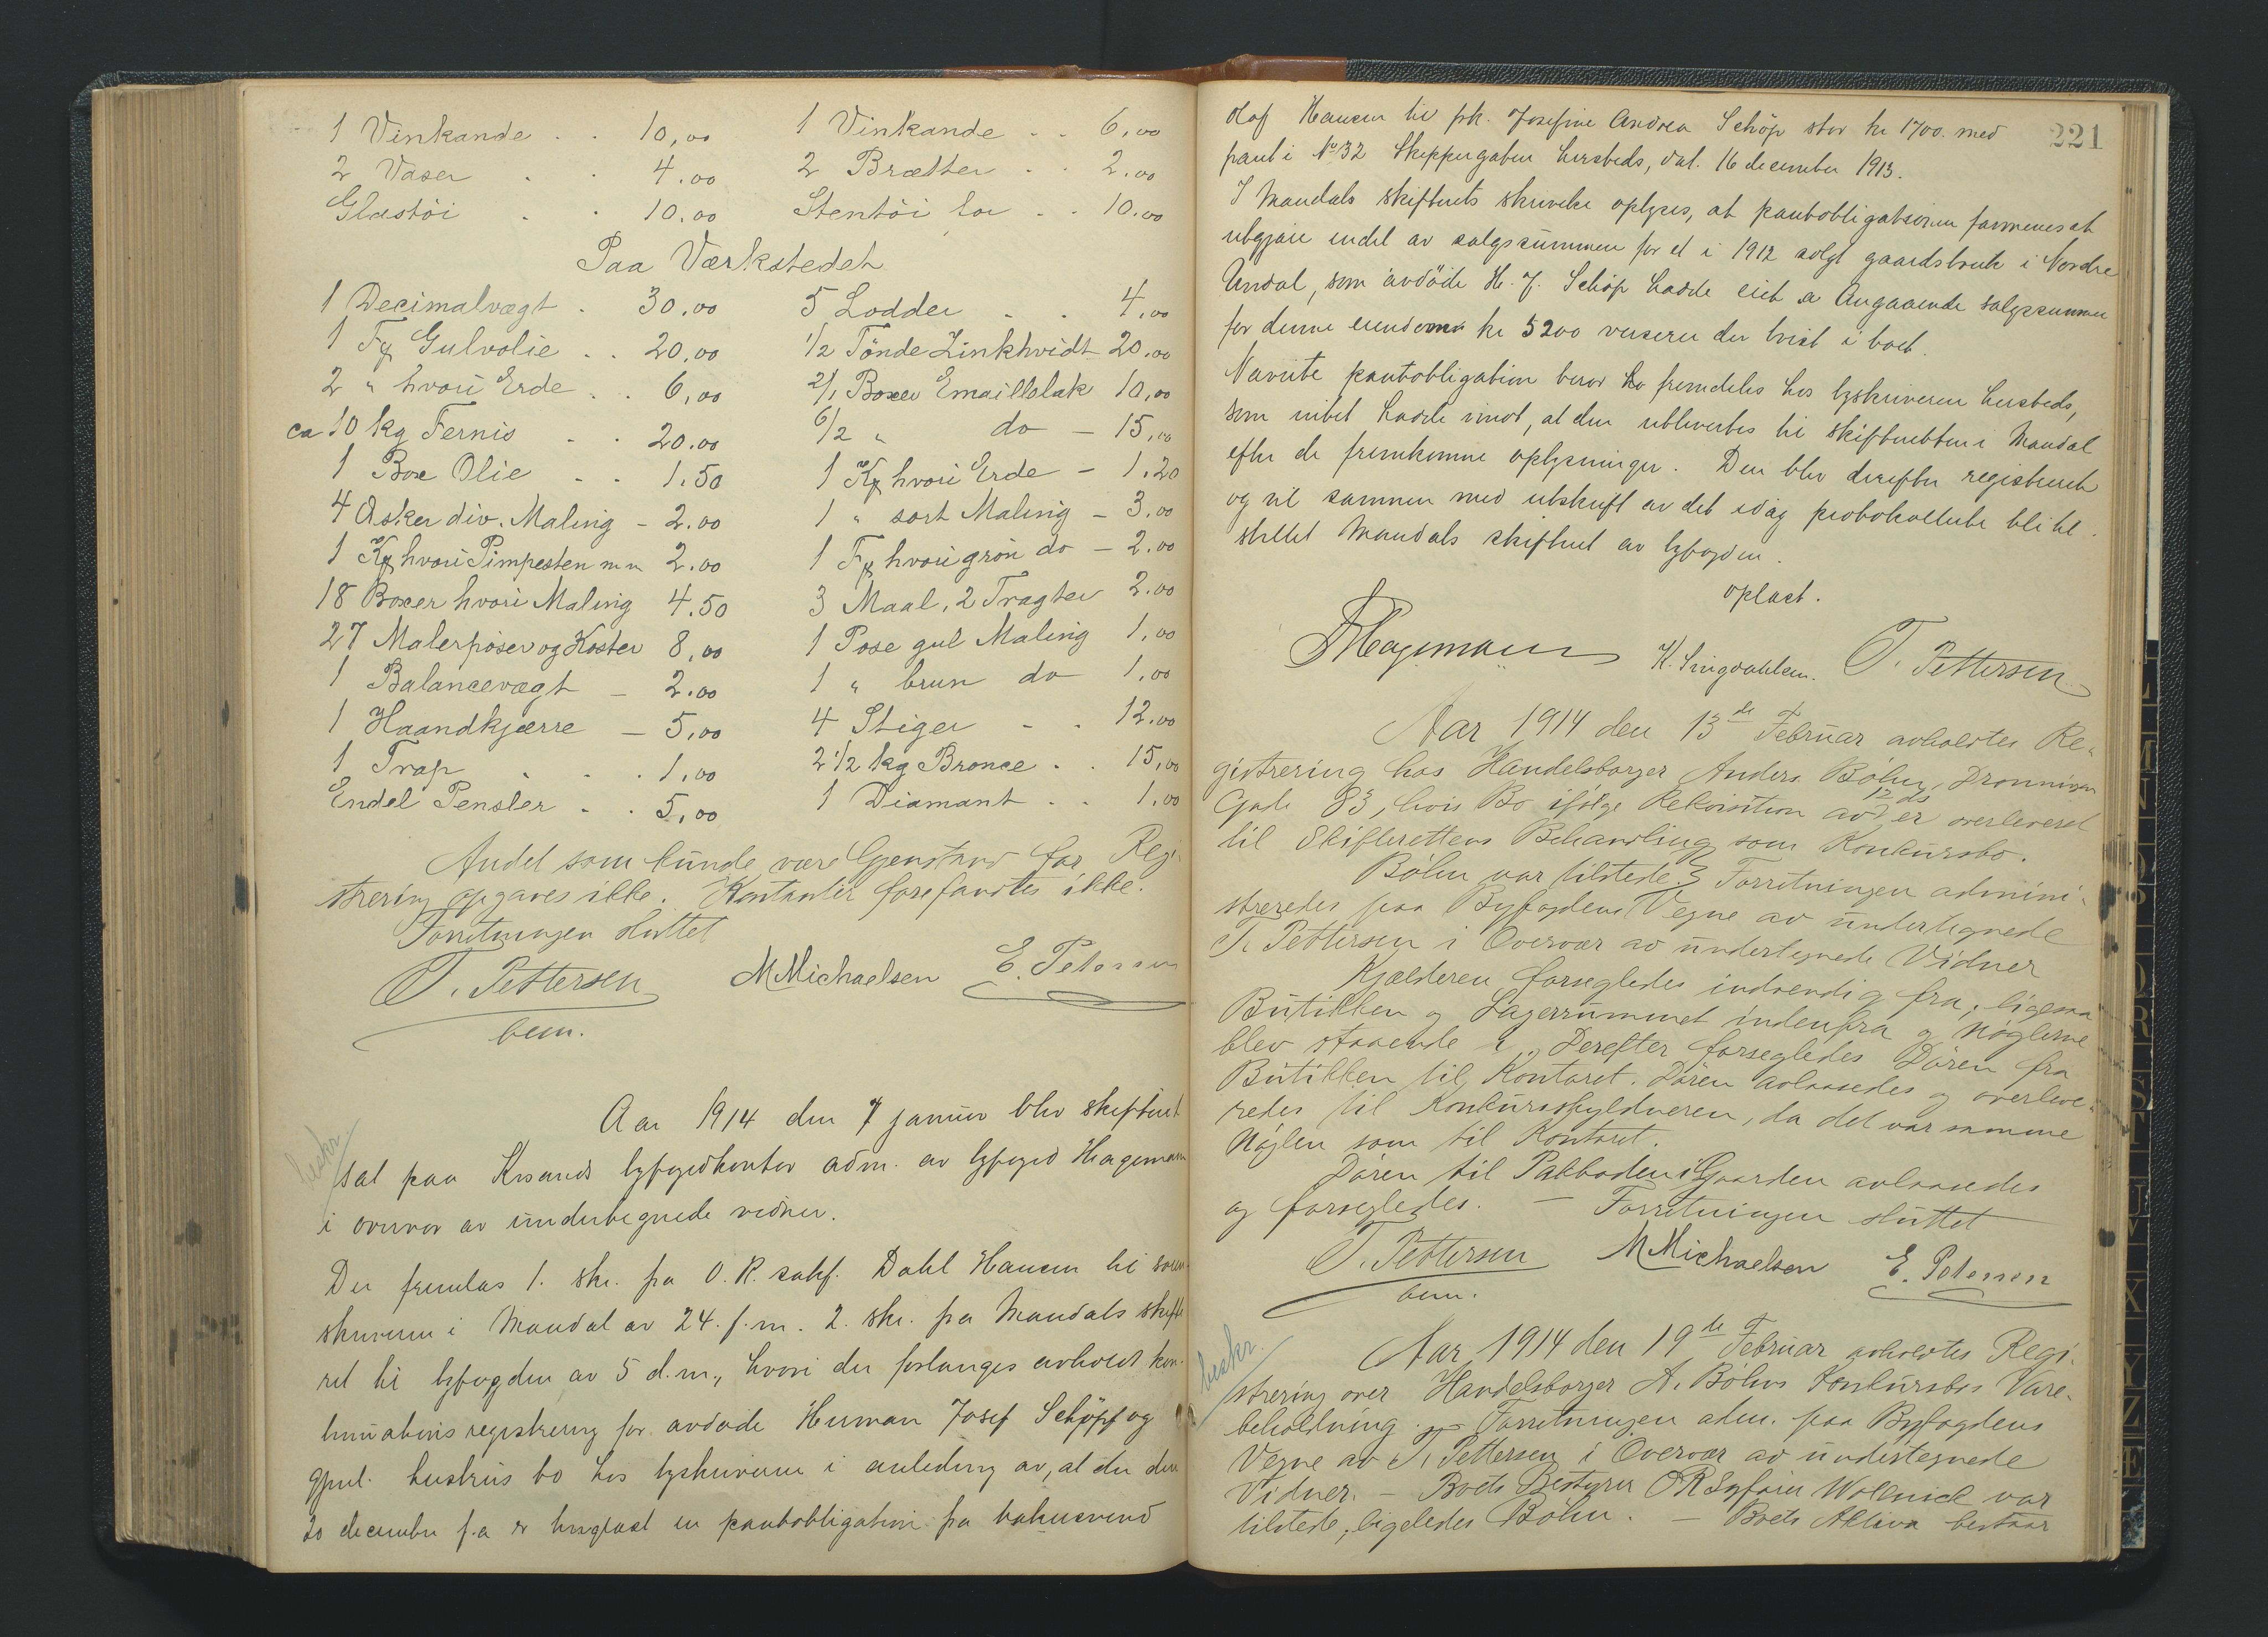 1 Vinkande . . 10,00 1 Vinkande . . 6,00
2 Vaser . . 4.00 2 Brætter . . 2.00
Glastöi . . 10.00 Stentöi . . 10.00
Paa Værkstedet
1 Decimalvægt . 30,00 5 Lodder . . 4,00
1 Fg Gulvolie . . 20,00 1/2 Tønde Zinkhvidt 20,00
2 " hvori Erde . . 6,00 2/1 Boxer Emaillelak 10,00
ca 10 kg Fernis . . 20.00 6/2 " do - 15,00
1 Box Olie . . 1.50 1 Kg hvori Erde - 1.20
4 Æsker div. Maling - 2.00 1 " sort Maling - 3.00
1 Kg hvori Pimpesten m m 2.00 1 Fg hvori grön do - 2.00
18 Boxer hvori Maling 4.50 3 Maal, 2 Tragter 2.00
27 Malerposer og Koster 8,00 1 Pose gul Maling 1,00
1 Balancevægt - 2.00 1 " brun do 1,00
1 Haandkjærre - 5,00 4 Stiger . . 12.00
1 Trap . . . 1,00 2 1/2 kg Bronce . . 15,00
Endel Pensler . . 5,00 1 Diamant . . 1,00
Andet som kunde være Gjenstand for Regi-
strering opgaves ikke. Kontanter forefandtes ikke.
Forretningen sluttet
T. Pettersen MMichaelsen E. Petersen
bem.
beskr.
Aar 1914 den 7 januar blev skifteret
sat paa Krsands byfogedkontor adm. av byfoged Hagemann
i overvær av undertegnede vidner.
Der fremlas 1. skr. fra O. R. sakf. Dahl Hansen til soren-
skriveren i Mandal av 24. f.m. 2. skr. fra Mandals skifte
ret til byfogden av 5 d.m., hvori der forlanges avholdt kon-
tinuations registrering for avdøde Herman Josef Schöpf og
gjenl. hustrus bo hos byskriveren i anledning av, at der den
20 december f.a er tinglæst en pantobligation fra
221
Olaf Hansen til frk. Josefine Andrea Schöp stor kr 1700. med
pant i No 32 Skippergaten hersteds, dat. 16 december 1913.
I Mandals skifterets skrivelse oplyses, at pantobligationen formenes at
utgjøre endel av salgssummen for et i 1912 solgt gaardsbruk i Nordre
Undal, som avdöde H. J. Schöp hadde eiet. Angaaende salgssummen
for denne eiendom kr 5200 verserer der tvist i boet.
Nævnte pantobligation beror fremdeles hos byskriveren hersteds,
som intet hadde imot, at den utlevertes til skifteretten i Mandal
efter de fremkomne oplysninger. Den blev derefter registreret
og vil sammen med utskrift av det idag protokollerte bli til-
stillet Mandals skifteret av byfogden.
oplæst.
Hagemann K. Lingvahlsen. T. Pettersen
Aar 1914 den 13de Februar avholdtes Re-
gistrering hos Handelsborger Anders Böhn, Dronningen
Gade 83, hvis Bo ifölge Rekvisition av 12 ds er overleveret
til Skifterettens Behandling som Konkursbo.
Böhn var tilstede. Forretningen admini-
streredes paa Byfogdens Vegne av undertegnede
T. Pettersen i Overvær av undertegnede Vidner
Kjælderen forsegledes indvendig fra, ligesaa
Butikken og Lagerrummet indenfra og Nøglerne
blev staaende i. Derefter forsegledes Dören fra
Butikken til Kontoret. Dören avlaasedes og overleve-
redes til Konkursskyldneren, da det var samme
Nöglen som til Kontoret.
Dören til Pakboden i Gaarden avlaasedes
og forsegledes. - Forretningen sluttet
T. Pettersen MMichaelsen E. Petersen
bem.
beskr.
Aar 1914 den 19de Februar avholdtes Regi-
strering over Handelsborger A. Böhns Konkursbos Vare-
beholdning. - Forretningen adm. paa Byfogdens
Vegne av T. Pettersen i Overvær av undertegnede
Vidner. - Boets Bestyrer ORSagförer Wollnick var
tilstede, ligeledes Böhn. - Boets Aktiva bestaar